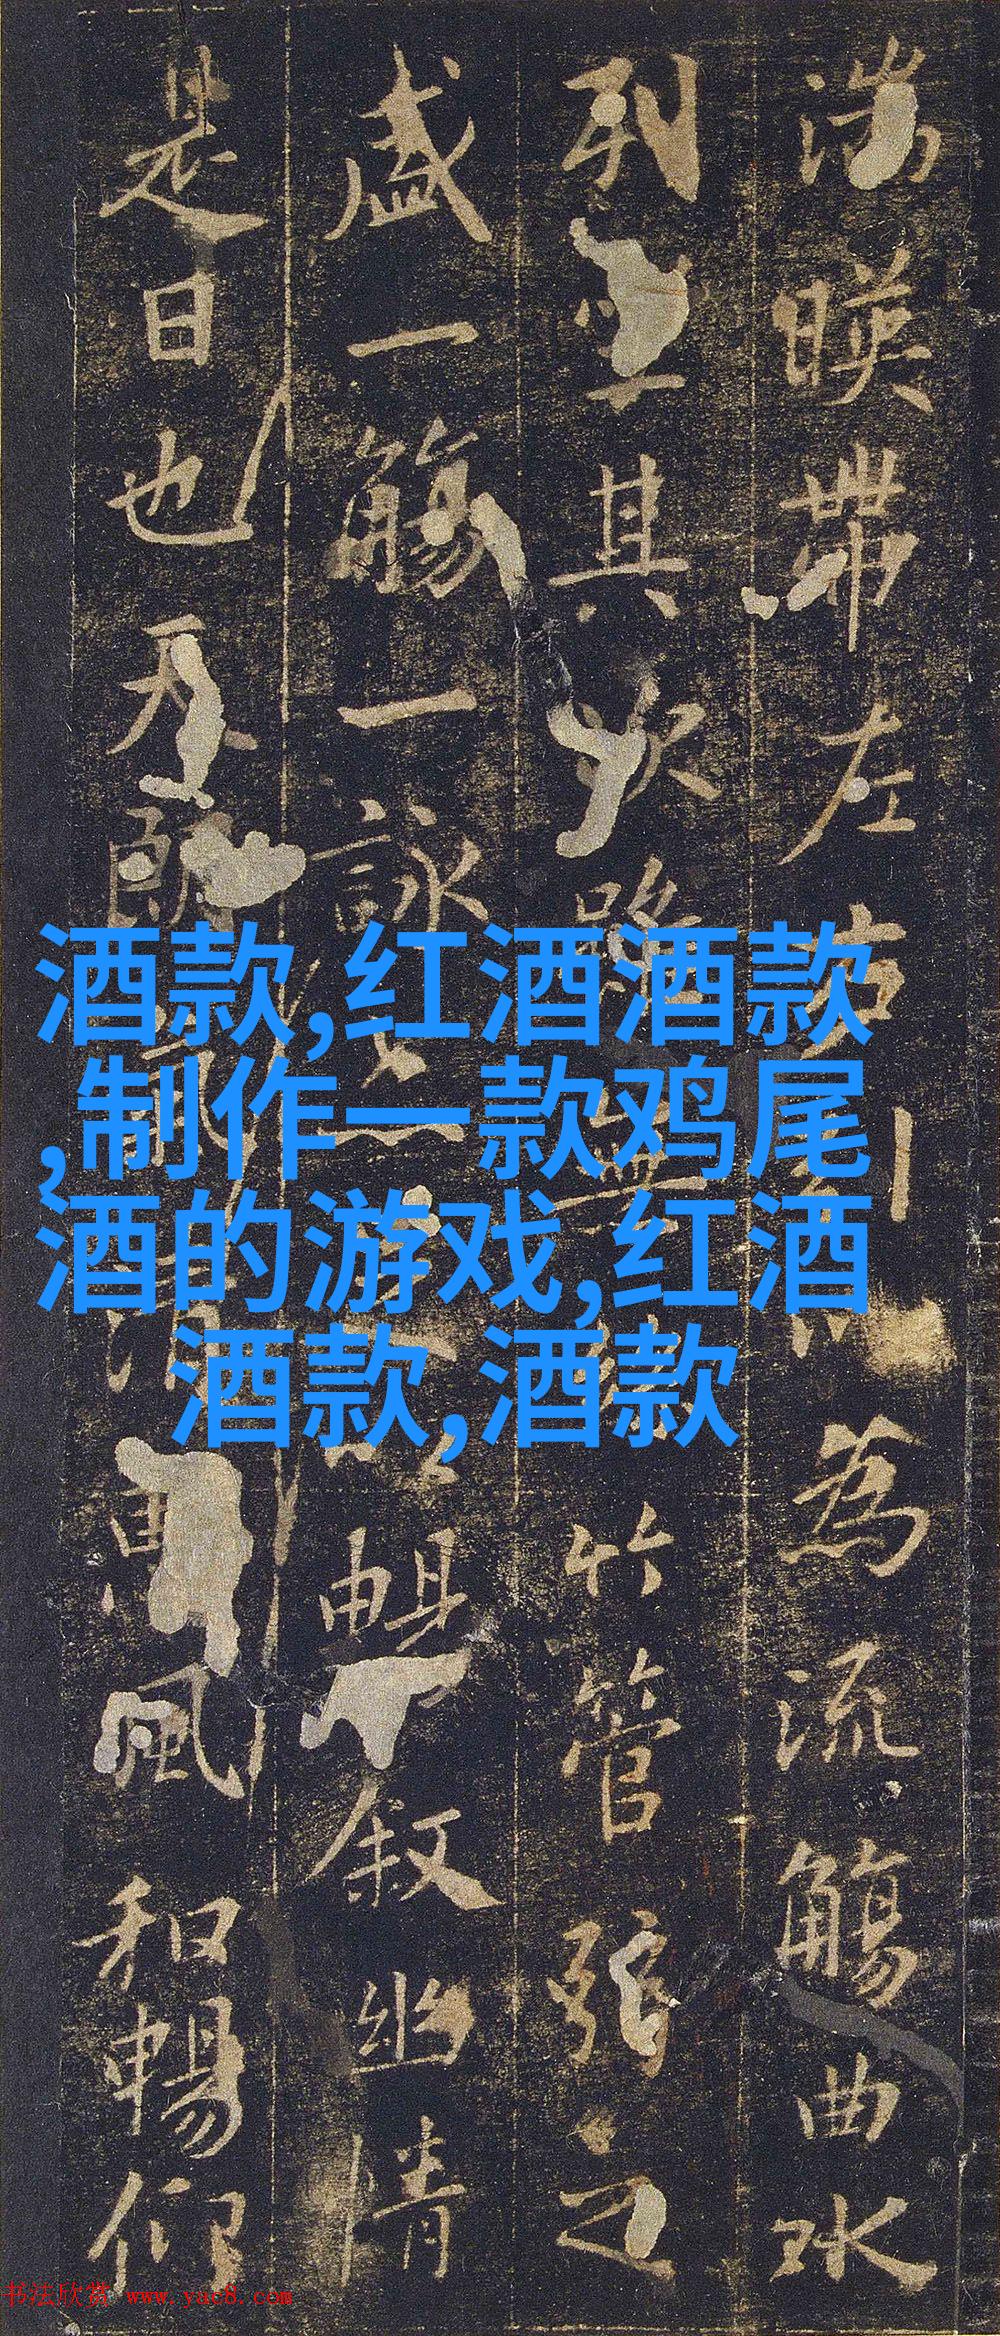 湍暎帶左右為流觴曲水
列坐其次雖無竹管弦之
盛一觴一詠暢敘幽情
是日也天朗風和暢仰
酒款,红酒酒款
,制作一款鸡尾
酒的游戏,红酒
酒款,酒款
书法欣赏 www.yac8.com